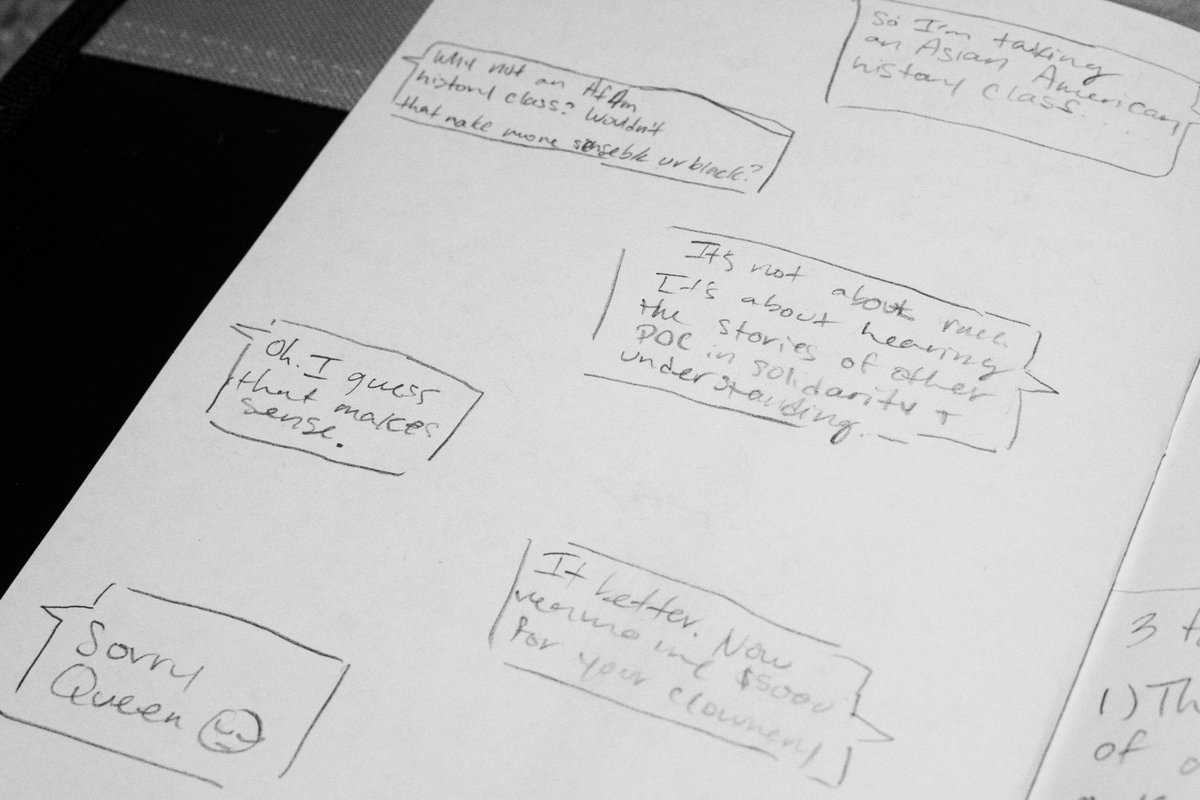 So I'm taking
an Asian American
history class...
Why not an AfAm
history class? Wouldn't
that make more senseble ur black?
It's not about race.
It's about hearing
the stories of other
POC in solidarity +
understanding.
Oh. I guess
that makes
sense.
It better. Now
venmo me $5000
for your clownery
Sorry
Queen
3
1) Th
of a